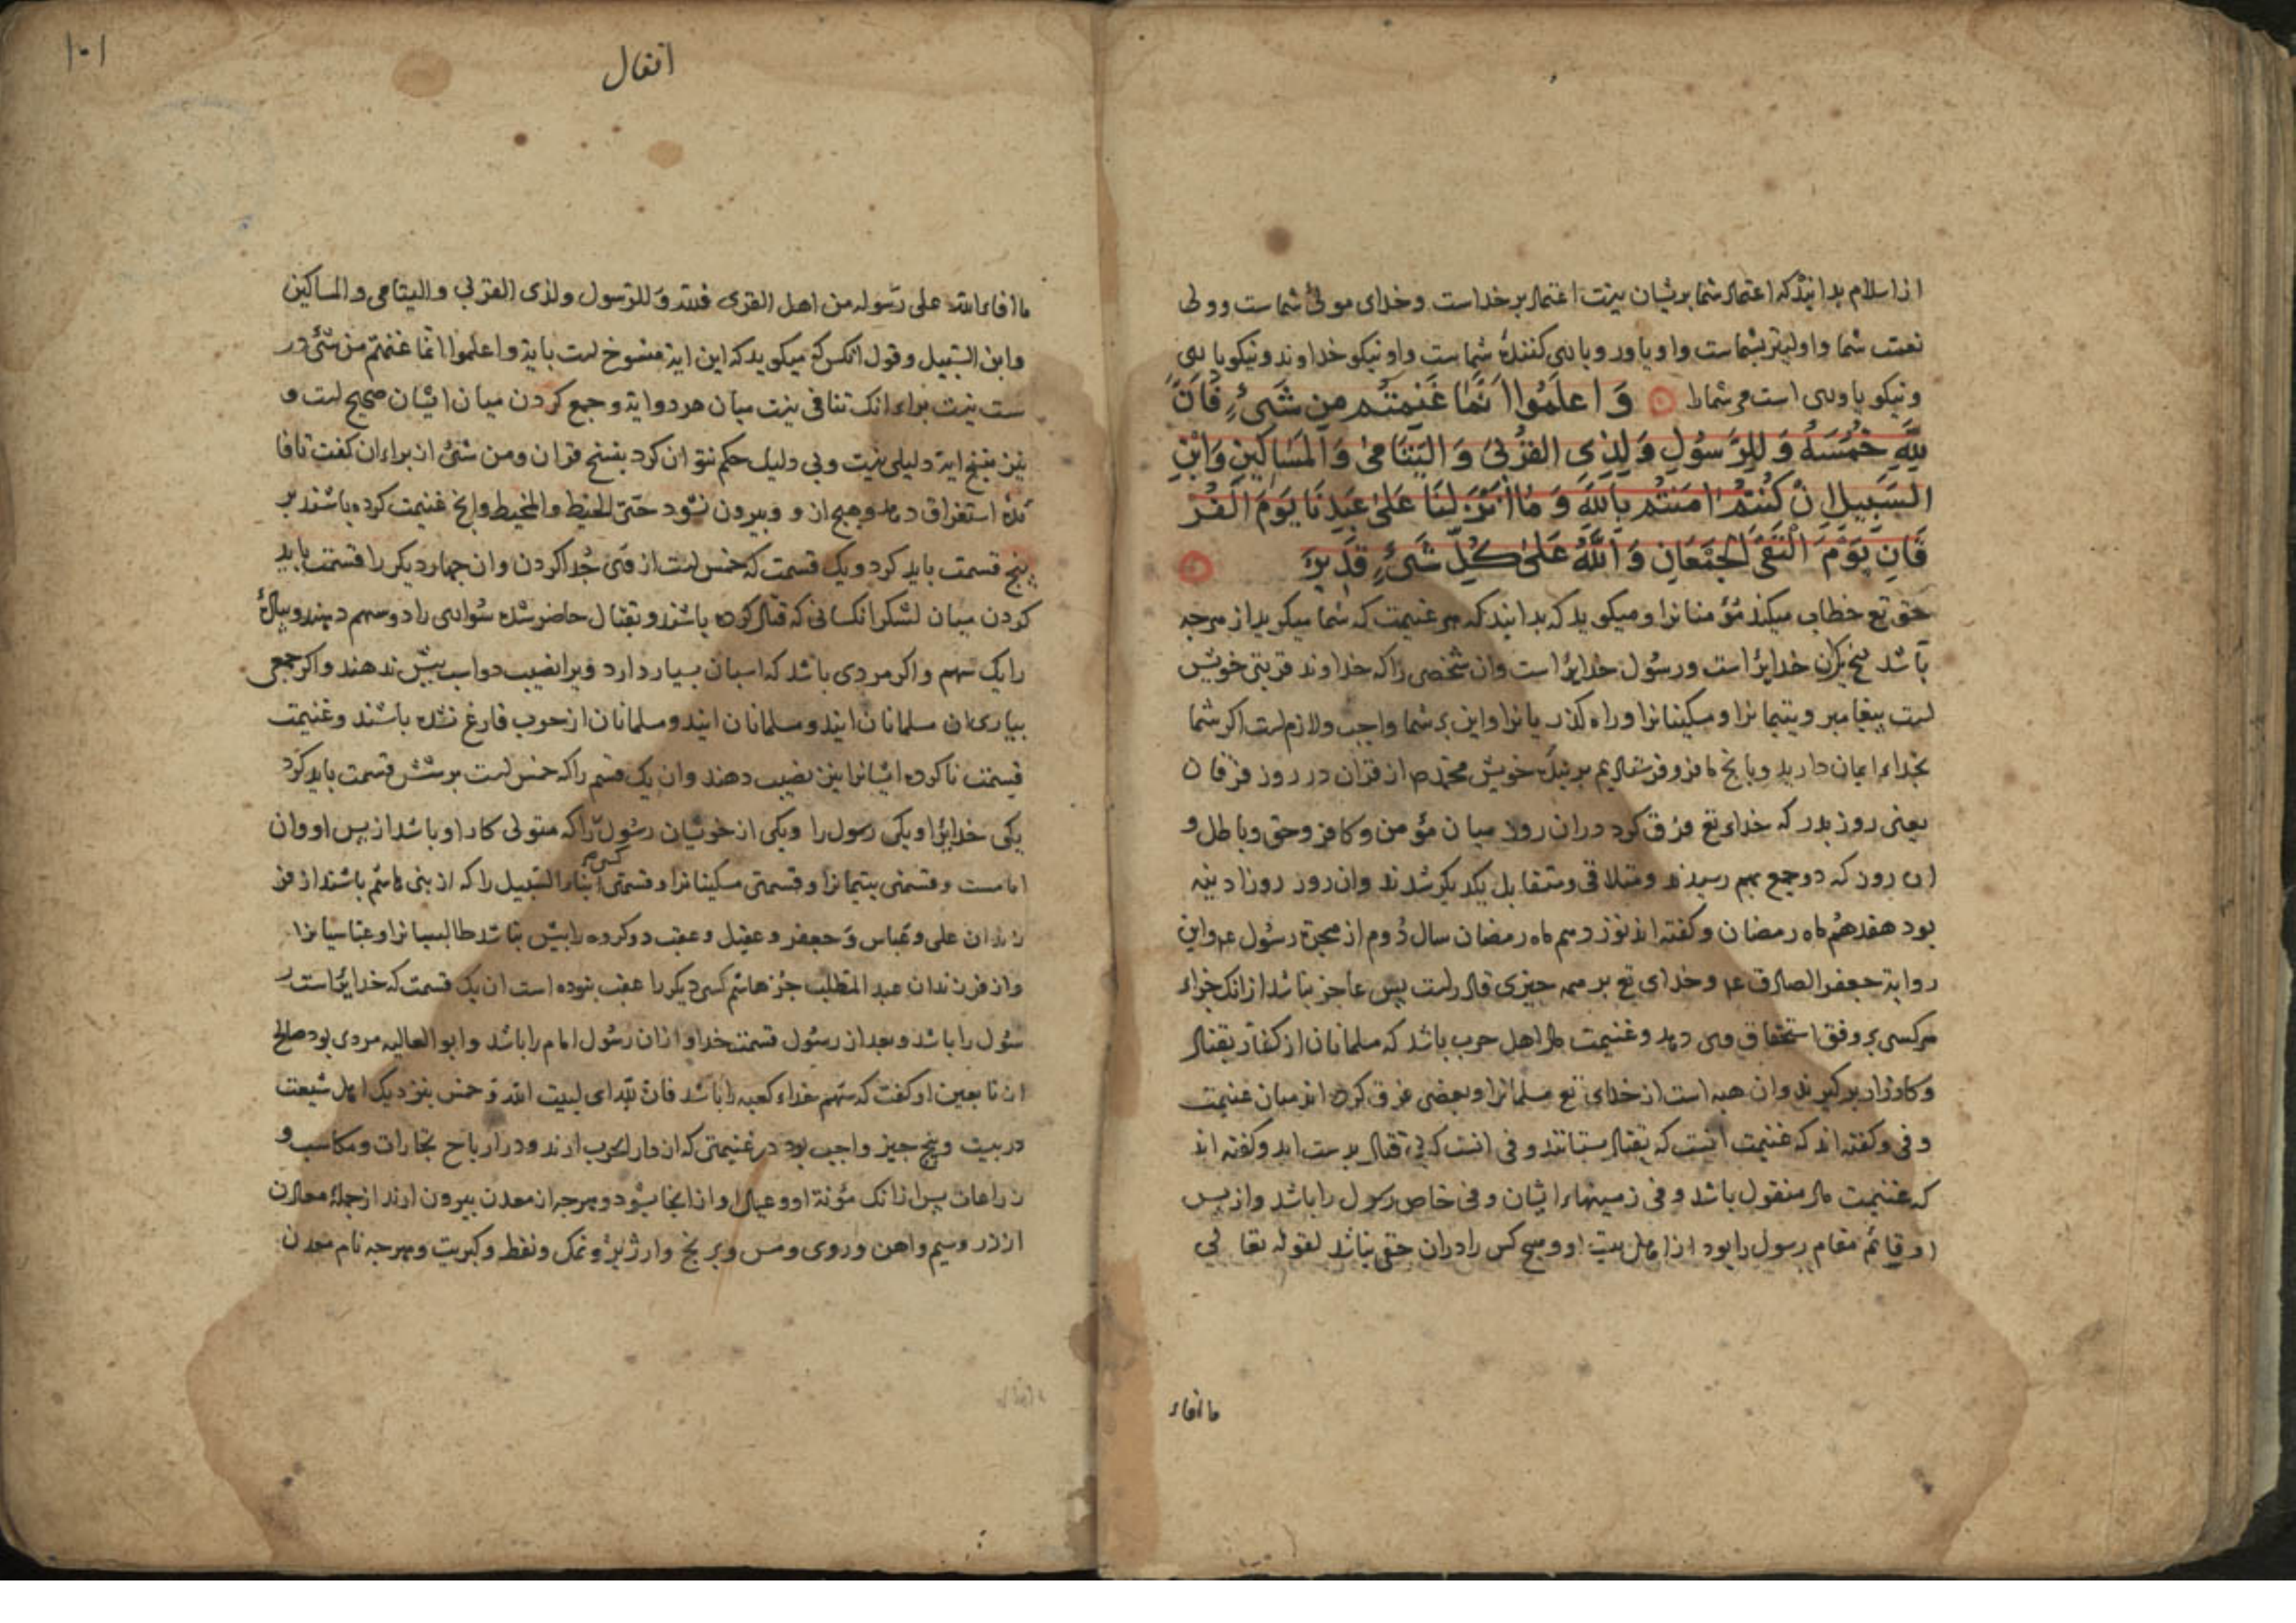 از اسلام بدانید که اعتماد شما بریشان نیست اعتماد بر خداست و خدای مولی شماست و ولی
نعمت شما و اولیتر بشماست و او یاور و یاری کنندهٔ شماست و او نیکو خداوند و نیکو یاری
و نیکو یاوری است مر شما را وَاعلَمُوا اَنَّمَا غَنِمتُم مِن شَیءٍ فَاَنَّ
لِلّٰهِ خُمُسَهُ وَلِلرَّسُولِ وَلِذِی القُربیٰ وَالیَتَامیٰ وَالمَسَاکِینِ وَابنِ
السَبِیلِ اِن کُنتُم اٰمَنتُم بِاللهِ وَمَا اَنزَلنَا عَلیٰ عَبدِنَا یَومَ الفُر
قَانِ یَومَ التَقَی الجَمعَانِ وَاللهُ عَلیٰ کُلِّ شَیءٍ قَدِیرٌ
حق تع خطاب میکند مؤمنانرا و میکوید که بدانید که هر غنیمت که شما میکیرید از هرجه
باشد پنج یکان خدایرا است و رسول خدایرا است وان شخصی را که خداوند قربتی خویش
لست بیغامبر و یتیمانرا و مسکینانرا و راه کذریانرا و این بر شما واجب و لازم لست اکر شما
بخداء ایمان دارید و بانج ما فرو فرستادیم بر بندهٔ خویش محمد ص از قران در روز فرقان
یعنی روز بدر که خداء تع فرق کرد دران روز میان مؤمن و کافر و حق و باطل و
ان روز که دو جمع بهم رسیدند و متلاقی و متقابل یکدیکر شدند وان روز روز ادینه
بود هفدهم ماه رمضان و کفته اند نوزدهم ماه رمضان سال دوم از هجرة رسول عم و این
روایة جعفر الصادق عم و خدای تع بر همه جیزی قادر لست پس عاجز نباشد ازانک جزاء
هرکسی بر وفق استحقاق وی دهد و غنیمت مال اهل حرب باشد که مسلمانان از کفار بقتال
و کارزار بر کیرند وان هبه است از خدای تع مسلمانرا و بعضی فرق کرده اند میان غنیمت
و فی و کفته اند که غنیمت انست که بقتال بستانند و فی انست که بی قتال بدست اید و کفته اند
که غنیمت مال منقول باشد و فی زمینهاء ایشان و فی خاص رسول را باشد و از پس
او قائم مقام رسول را بود از اهل بیت او و هیج کس را دران حقی نباشد لقوله تعالی
ما افاء
۱۰۱
انفال
ما افاء الله علی رسوله من اهل القری فلله و للرسول ولذی القربی والیتامی والمساکین
وابن السبیل و قول انکس که میکوید که این ایة منسوخ لست بایة واعلموا انما غنمتم من شئ در
ست نیست براء انک تنافی نیست میان هر دو ایة و جمع کردن میان ایشان صحیح لست و
نیز بنسخ ایة دلیلی نیست و بی دلیل حکم نتوان کرد بنسخ قران و من شئ از براء ان کفت تا فا
ئدهٔ استغراق دهد و هیج از و بیرون نشود حتی الخیط والمخیط وانج غنیمت کرده باشند بر
پنج قسمت باید کرد و یک قسمت که خمس لست از فی جدا کردن وان جهار دیکر را قسمت باید
کردن میان لشکر انکسانی که قتال کرده باشند و بقتال حاضر شده سواری را دو سهم دهند و پیاده
را یک سهم و اکر مردی باشد که اسبان بسیار دارد ویرا نصیب دو اسب بیش ندهند و اکر جمعی
بیاری ان مسلمانان ایند و مسلمانان ایند و مسلمانان از حرب فارغ نشده باشند و غنیمت
قسمت ناکرده ایشانرا نیز نصیب دهند وان یک قسم را که خمس لست بر شش قسمت باید کرد
یکی خدایرا و یکی رسول را و یکی از خویشان رسول را که متولی کار او باشد از پس او وان
امامست و قسمتی یتیمانرا و قسمتی مسکینانرا و قسمتی ابناء السبیل را که از بنی هاشم باشند از فر
زندان علی و عباس و جعفر و عقیل و عقب دو کروه را بیش نباشد طالبیانرا و عباسیانرا
و از فرزندان عبد المطلب جز هاشم کسی دیکر را عقب نبوده است ان یک قسمت که خدایرا است ر
سول را باشد و بعد از رسول قسمت خدا و ازان رسول امام را باشد و ابو العالیه مردی بود صالح
از تابعین او کفت که سهم خداء کعبه را باشد فان لله ای لبیت الله و خمس بنزدیک اهل شیعت
در بیست و پنج جیز واجب بود در غنیمتی که از دار الحرب ارند و در ارباح تجارات و مکاسب و
زراعات پس ازانک مؤنة او و عیال او ازانجا بشود و هرجه از معدن بیرون ارند از جملهٔ معادن
از زر و سیم و اهن و روی و مس و برنج و ارزیز و نمک و نفط و کبریت و هرجه نام معدن